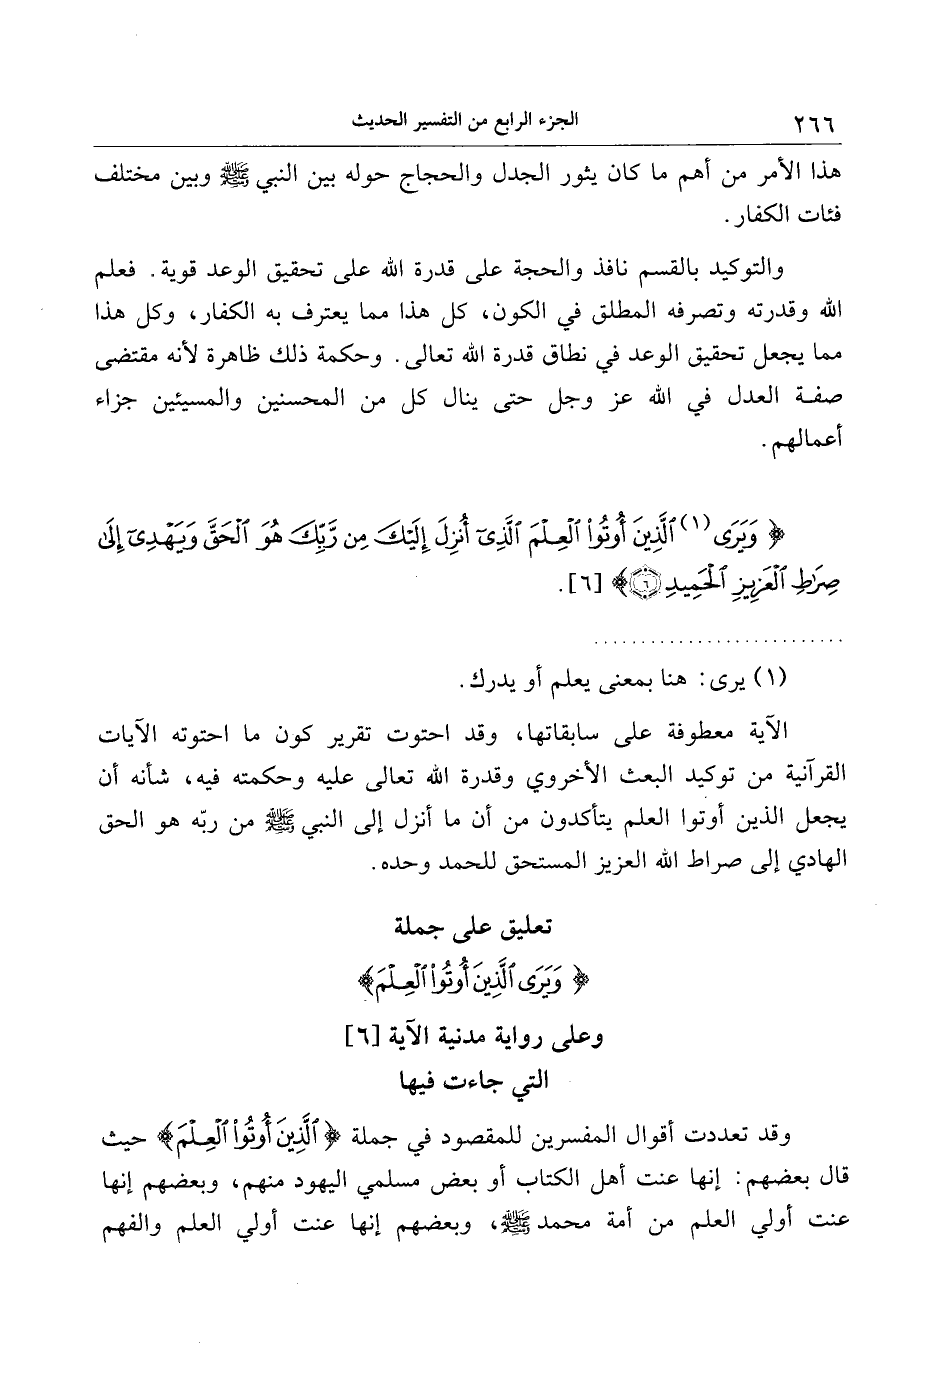 ٢٦٦ الجزء الرابع من التفسير الحديث
هذا الأمر من أهم ما كان يثور الجدل والحجاج حوله بين النبي ﷺ وبين مختلف
فئات الكفار.
والتوكيد بالقسم نافذ والحجة على قدرة الله على تحقيق الوعد قوية. فعلم
الله وقدرته وتصرفه المطلق في الكون، كل هذا مما يعترف به الكفار، وكل هذا
مما يجعل تحقيق الوعد في نطاق قدرة الله تعالى. وحكمة ذلك ظاهرة لأنه مقتضى
صفة العدل في الله عز وجل حتى ينال كل من المحسنين والمسيئين جزاء
أعمالهم.
﴿ وَيَرَى (١) ٱلَّذِينَ أُوتُواْ ٱلْعِلْمَ ٱلَّذِىٓ أُنزِلَ إِلَيْكَ مِن رَّبِّكَ هُوَ ٱلْحَقَّ وَيَهْدِىٓ إِلَىٰ
صِرَٰطِ ٱلْعَزِيزِ ٱلْحَمِيدِ ٦ ﴾ [٦].
........................
(١) يرى: هنا بمعنى يعلم أو يدرك.
الآية معطوفة على سابقاتها، وقد احتوت تقرير كون ما احتوته الآيات
القرآنية من توكيد البعث الأخروي وقدرة الله تعالى عليه وحكمته فيه، شأنه أن
يجعل الذين أوتوا العلم يتأكدون من أن ما أنزل إلى النبي ﷺ من ربّه هو الحق
الهادي إلى صراط الله العزيز المستحق للحمد وحده.
تعليق على جملة
﴿ وَيَرَى ٱلَّذِينَ أُوتُواْ ٱلْعِلْمَ ﴾
وعلى رواية مدنية الآية [٦]
التي جاءت فيها
وقد تعددت أقوال المفسرين للمقصود في جملة ﴿ ٱلَّذِينَ أُوتُواْ ٱلْعِلْمَ ﴾ حيث
قال بعضهم: إنها عنت أهل الكتاب أو بعض مسلمي اليهود منهم، وبعضهم إنها
عنت أولي العلم من أمة محمد ﷺ، وبعضهم إنها عنت أولي العلم والفهم